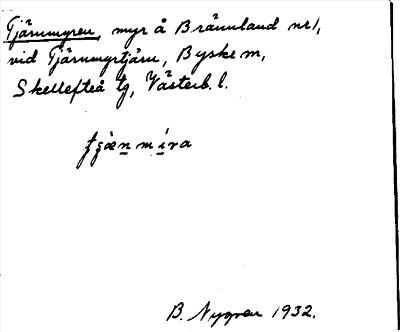 Tjärnmyren, myr å Brännland nr 1,
vid Tjärnmyrtjärn, Byske m,
Skellefteå tg, Västerb. l.
B. Nygren 1932.